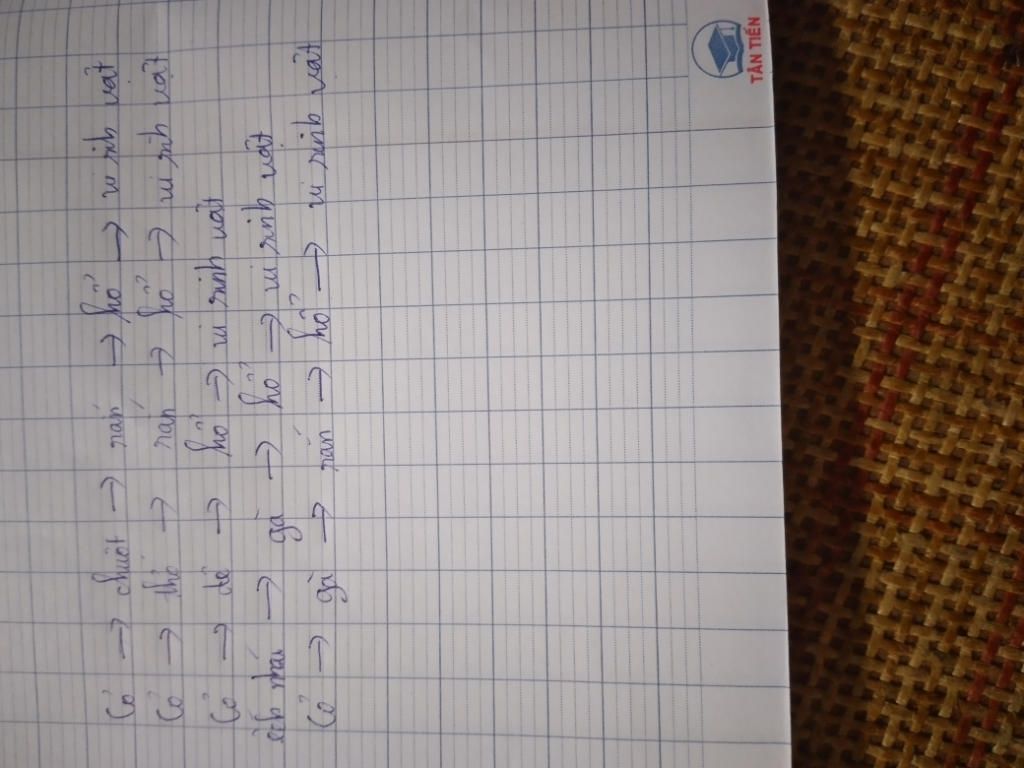 Cỏ → chuột → rắn → hổ → vi sinh vật
Cỏ → thỏ → rắn → hổ → vi sinh vật
Cỏ → dê → hổ → vi sinh vật
ếch nhái → gà → hổ → vi sinh vật
Cỏ → gà → rắn → hổ → vi sinh vật
TÂN TIẾN